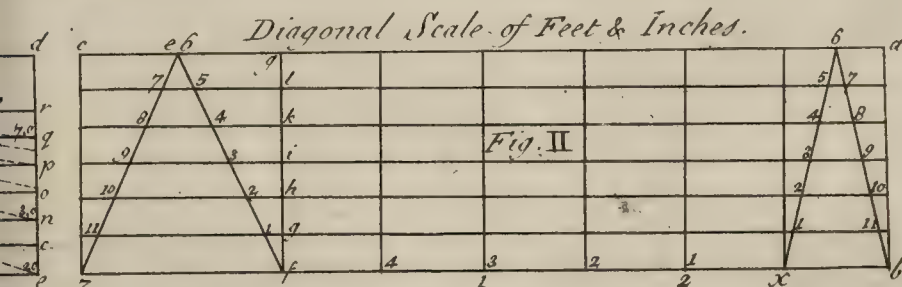 Diagonal Scale of Feet & Inches.
d c e 6 q 6 a
7 5 l 5 7
r 8 4 k 4 8
q
Fig. II
p 9 3 i 3 9
o 10 2 h 2 10
n 11 1 g 1 11
c.
e z f 4 3 2 1 x b
1 2